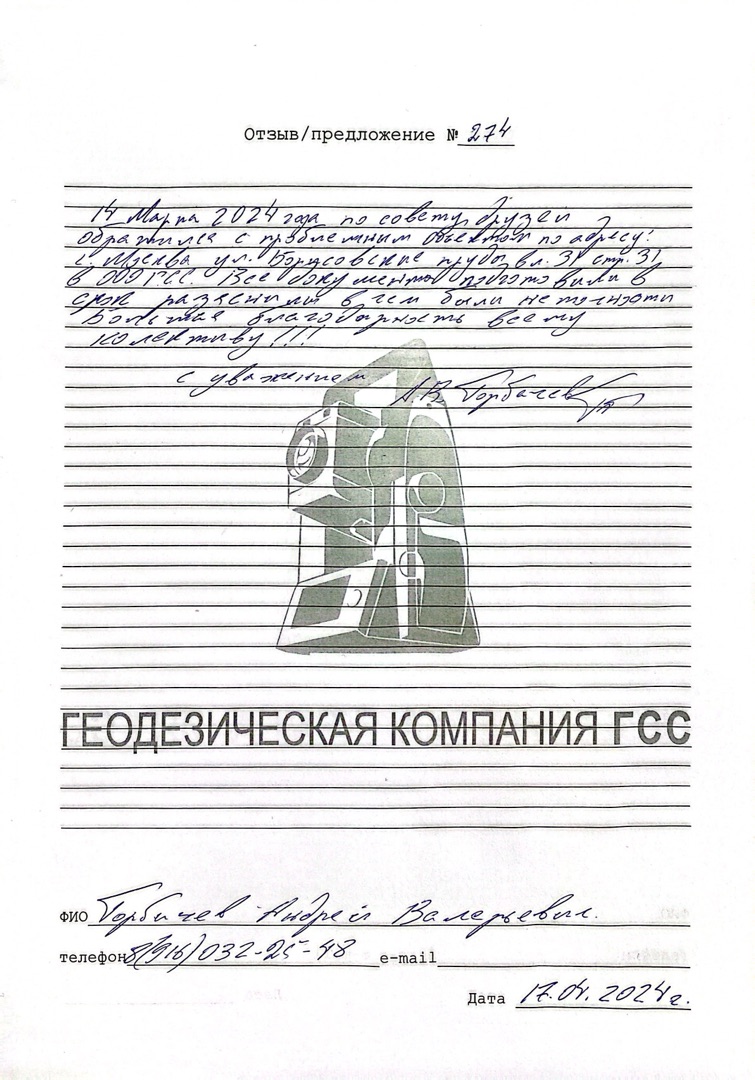 Отзыв/предложение № 274
14 Марта 2024 года по совету друзей
обратился с проблемным объектом по адресу:
г. Москва ул. Борисовские пруды вл. 31 стр. 31
в ООО ГСС. Все документы подготовили в
срок разяснили в чем были неточности
Большая благодарность всему
колективу!!!
с уважением А.В. Горбачев
ГЕОДЕЗИЧЕСКАЯ КОМПАНИЯ ГСС
ФИО Горбачев Андрей Валерьевич.
телефон 8(916)032-25-48 e-mail
Дата 17.04.2024г.